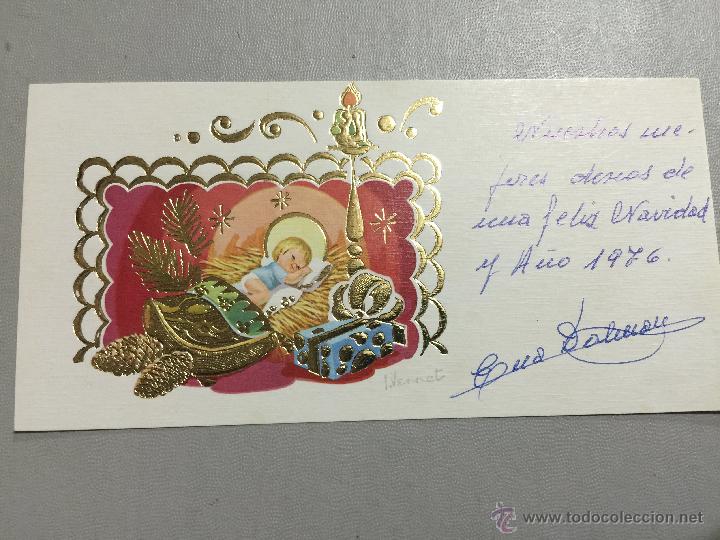 Nuestros me-
jores deseos de
una feliz Navidad
y Año 1976.
Vernet
www.todocoleccion.net